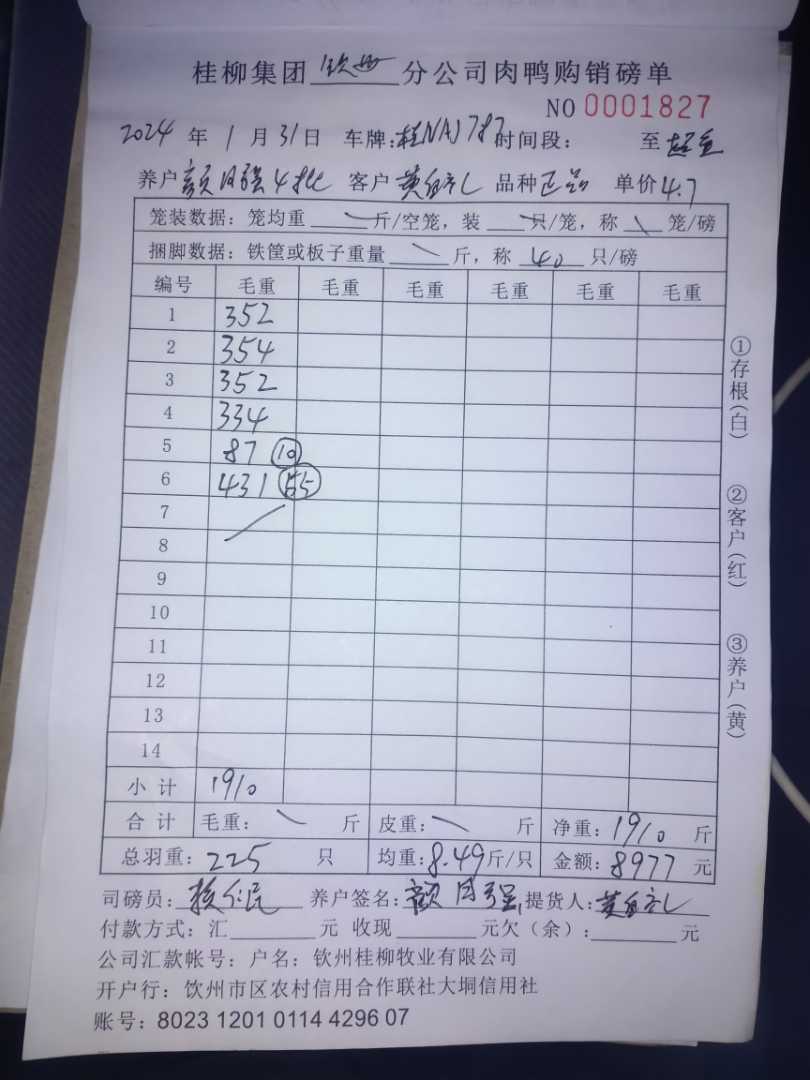 桂柳集团钦州分公司肉鸭购销磅单
NO 0001827
2024年1月31日 车牌:桂NAJ787 时间段: 至
养户 月强4批 客户 黄 品种 正品 单价4.7
笼装数据: 笼均重 斤/空笼, 装 只/笼, 称 笼/磅
捆脚数据: 铁筐或板子重量 斤, 称 40 只/磅
编号 毛重 毛重 毛重 毛重 毛重 毛重
1 352
2 354
3 352
4 334
5 87 10
6 431 55
7
8
9
10
11
12
13
14
小计 1910
合计 毛重: 斤 皮重: 斤 净重: 1910 斤
总羽重: 225 只 均重: 8.49斤/只 金额: 8977 元
司磅员: 养户签名: 月强 提货人: 黄
付款方式: 汇 元 收现 元欠(余): 元
公司汇款帐号: 户名: 钦州桂柳牧业有限公司
开户行: 饮州市区农村信用合作联社大垌信用社
账号: 8023 1201 0114 4296 07
①存根(白)
②客户(红)
③养户(黄)